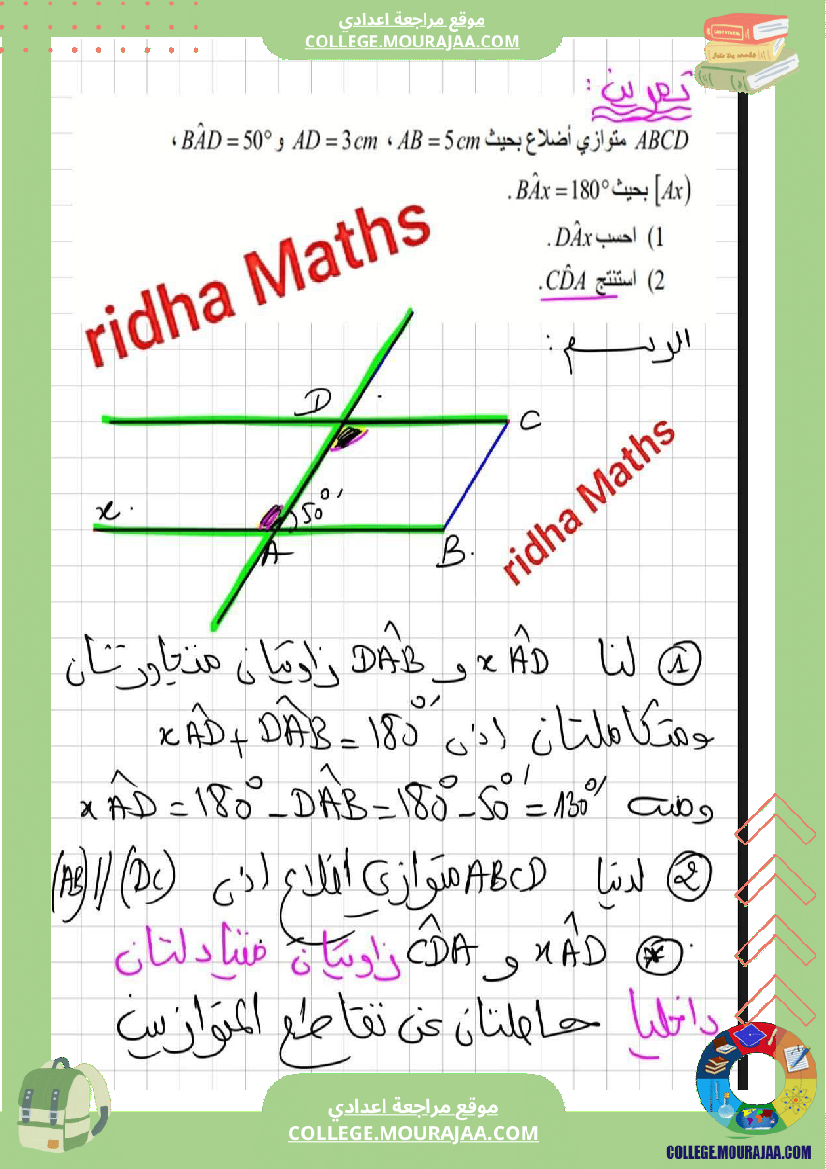 موقع مراجعة اعدادي
COLLEGE.MOURAJAA.COM
تمرين :
ABCD متوازي أضلاع بحيث AB = 5cm ، AD = 3cm و BÂD = 50° ،
[Ax) بحيث BÂx = 180° .
1) احسب DÂx .
2) استنتج CD̂A .
ridha Maths
الرسم :
D
C
x
50°
A
B
ridha Maths
① لنا xÂD و DÂB زاويتان متجاورتان
ومتكاملتان اذن xÂD + DÂB = 180°
ومنه xÂD = 180° - DÂB = 180° - 50° = 130°
② لدينا ABCD متوازي اضلاع اذن (AB) // (DC)
* xÂD و CD̂A زاويتان متبادلتان
داخليا حاصلتان عن تقاطع المتوازيين
موقع مراجعة اعدادي
COLLEGE.MOURAJAA.COM
COLLEGE.MOURAJAA.COM